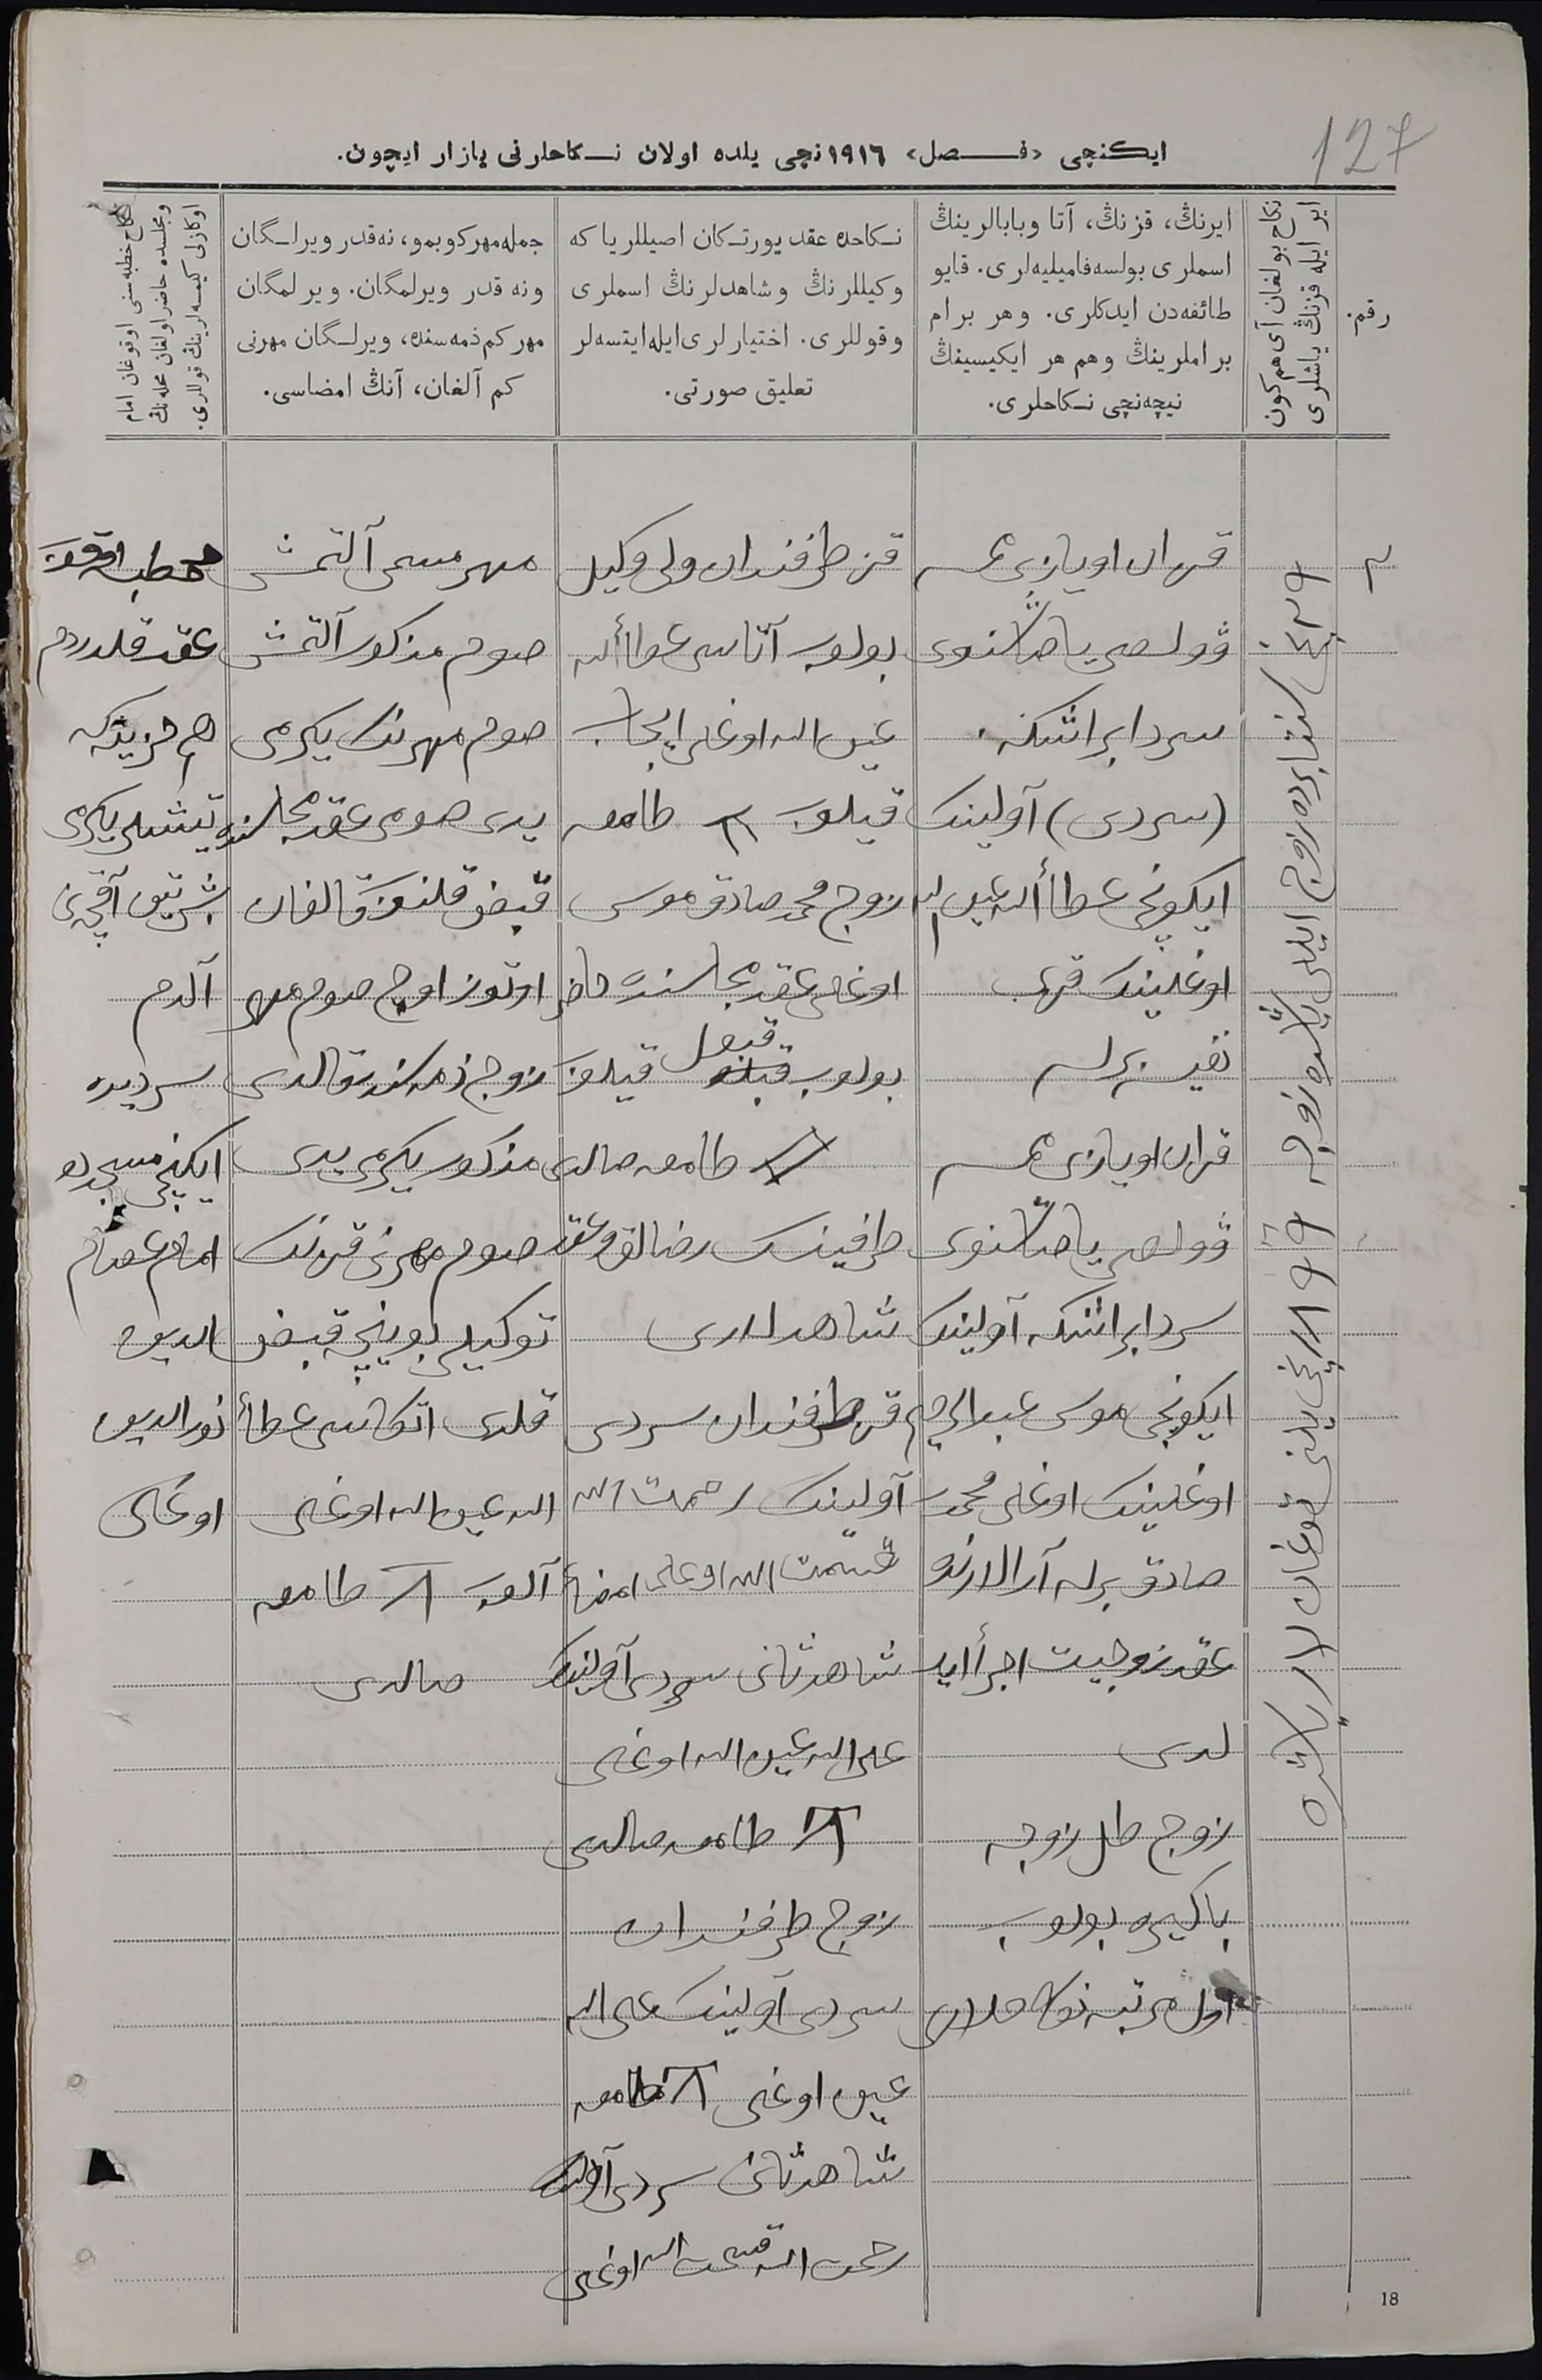 127
ایكنچی «فصل» ١٩١٦نچی یلده اولان نكاحلرنی یازار ایچون.
رقم.
ایر ایله قزنڭ یاشلری
نكاح بولغان آی هم كون
ایرنڭ، قزنڭ، آتا وبابالرینڭ
اسملری بولسه فامیلیه‌لری. قایو
طائفه‌دن ایدكلری. وهر برام
براملرینڭ وهم هر ایكیسینڭ
نیچه‌نچی نكاحلری.
نكاحده عقد یورتكان اصیللر یا كه
وكیللرنڭ وشاهدلرنڭ اسملری
وقوللری. اختیارلری ایله ایتسه‌لر
تعلیق صورتی.
جمله مهر كوبمو، نه‌قدر ویرلگان
ونه قدر ویرلمگان. ویرلمگان
مهر كم ذمه‌سنده، ویرلگان مهرنی
كم آلغان، آنڭ امضاسی.
نكاح خطبه‌سنی اوقوغان امام
ومجلسده حاضر اولغان محله‌نڭ
اوكازل كیمسه‌لرینڭ قوللری.
٣
زوج ایللی یاشده زوجه
نچی یلنی توغان لار
قزان اویازی هم
سردا برانتسكه
(سردی) آولینك
ایكونچی عطاأ الله عین الله
اوغلینك قزی
برله
قزان اویازی هم
سردا برانتسكه آولینك
ایكونچی موسی عبدالرحیم
اوغلینك اوغلی محمد
صادق برله آرالارنده
عقد زوجیت اجرأ اید
لدی
زوج طل زوجه
باكیره بولوب
اول مرتبه نكاحلاری
قز طرفندان ولی وكیل
بولوب آتاسی عطاأ الله
عین الله اوغلی ایجاب
قیلوب طامعه
زوج محمد صادق موسی
اوغلی عقد مجلسنده حاضر
بولوب قبول قیلوب
طامعه صالدی
طرفینك رضالق وعقد
شاهدلاری
قز طرفندان سردی
آولینك رحمت الله
قسمت الله اوغلی امضاء
شاهد ثانی سردی آولینك
علی الله عین الله اوغلی
طامعه صالدی
زوج طرفندان
سردی آولینك علی الله
عین اوغلی طامعه
شاهد ثانی سردی آولینك
رحمت الله قسمت الله اوغلی
مهر مسمی آلتمش
صوم مذكور آلتمش
صوم مهرنك یكرمی
یدی صومی عقد مجلسنده
قبض قلنوب قالغان
اوتوز اوچ صوم مهر
زوج ذمه‌سنده قالدی
مذكور یكرمی یدی
صوم مهرنی قزنك
توكیلی بوینچه قبض
قلدی اتكاسی عطاأ
الله عین الله اوغلی
آلوب طامعه
صالدی
خطبه اوقوب
عقد قلدردم
هم خزینه‌كه
تیتشلی یكرمی
بش تین آقچه‌نی
آلدم
سردیده
ایكنچی مسجده
امام عصام
الدین
نورالدین
اوغلی
18